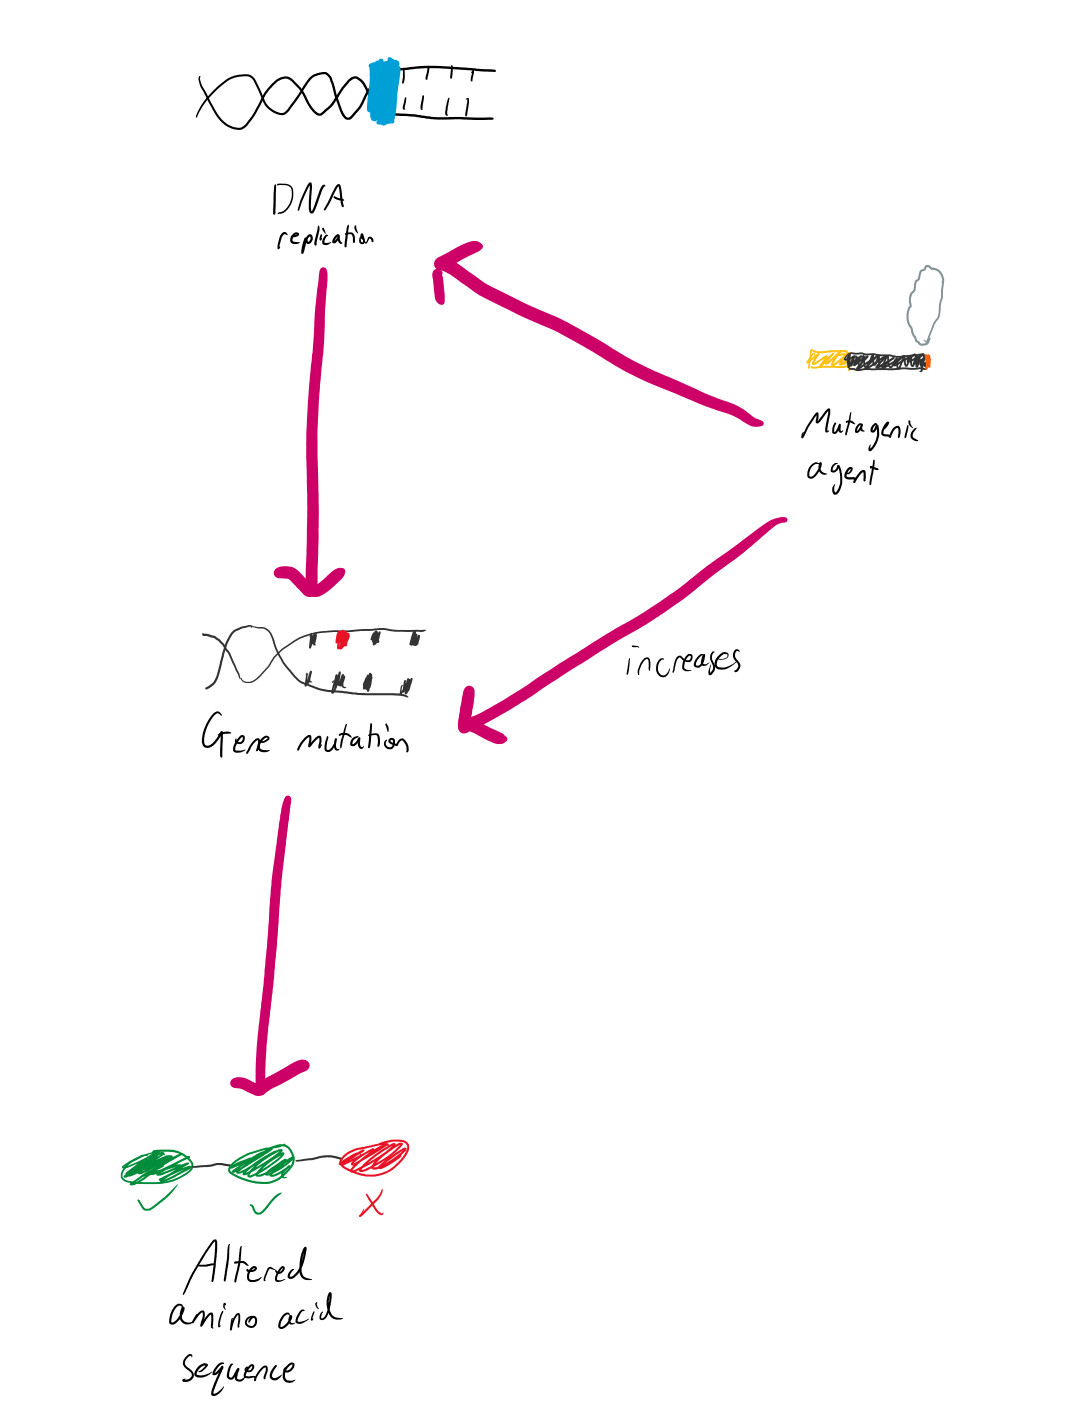 DNA
replication
Mutagenic
agent
increases
Gene mutation
Altered
amino acid
sequence